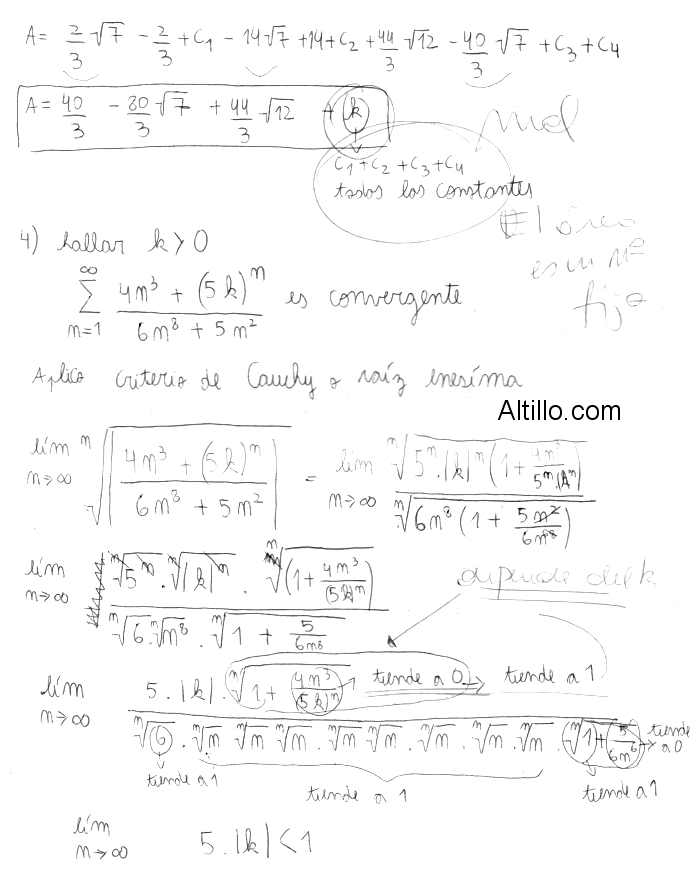 A = 2/3 √7 - 2/3 + C1 - 14√7 + 14 + C2 + 44/3 √12 - 40/3 √7 + C3 + C4
A = 40/3 - 80/3 √7 + 44/3 √12 + k
mal
C1 + C2 + C3 + C4
todos las constantes
El área
es un nº
fijo
4) hallar k > 0
∞ ∑ n=1 (4n³ + (5k)ⁿ) / (6n⁸ + 5n²) es convergente
Aplico criterio de Cauchy o raíz enesíma
Altillo.com
lím n→∞ ⁿ√|(4n³ + (5k)ⁿ) / (6n⁸ + 5n²)| = lím n→∞ ⁿ√(5ⁿ.|k|ⁿ (1 + 4n³/(5ⁿ.kⁿ))) / ⁿ√(6n⁸ (1 + 5n²/6n⁸))
lím n→∞ ⁿ√5ⁿ . ⁿ√|k|ⁿ . ⁿ√(1 + 4n³/(5k)ⁿ) / ⁿ√6 . ⁿ√n⁸ . ⁿ√(1 + 5/6n⁶)
depende del k
lím n→∞ 5.|k|. ⁿ√(1 + 4n³/(5k)ⁿ) → tiende a 0 → tiende a 1
ⁿ√6 . ⁿ√n ⁿ√n ⁿ√n . ⁿ√n ⁿ√n . ⁿ√n . ⁿ√n . ⁿ√n . ⁿ√(1 + 5/6n⁶) → tiende a 0
tiende a 1
tiende a 1
tiende a 1
lím n→∞ 5.|k| < 1